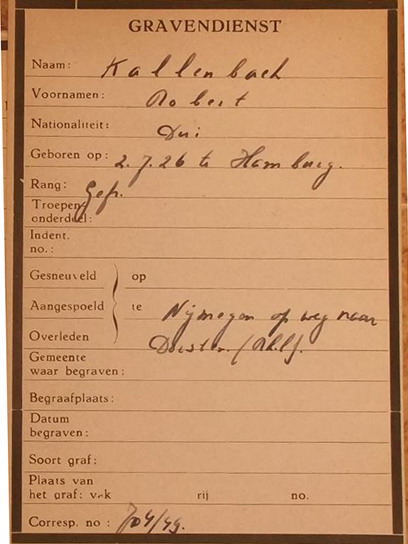 GRAVENDIENST
Naam: Kallenbach
Voornamen: Robert
Nationaliteit: Dui
Geboren op: 2.7.26 te Hamburg.
Rang: Gefr.
Troepen-
onderdeel:
Indent.
no.:
Gesneuveld op
Aangespoeld te Nijmegen op weg naar
Overleden
Gemeente
waar begraven:
Begraafplaats:
Datum
begraven:
Soort graf:
Plaats van
het graf: vak rij no.
Corresp. no: 704/49.